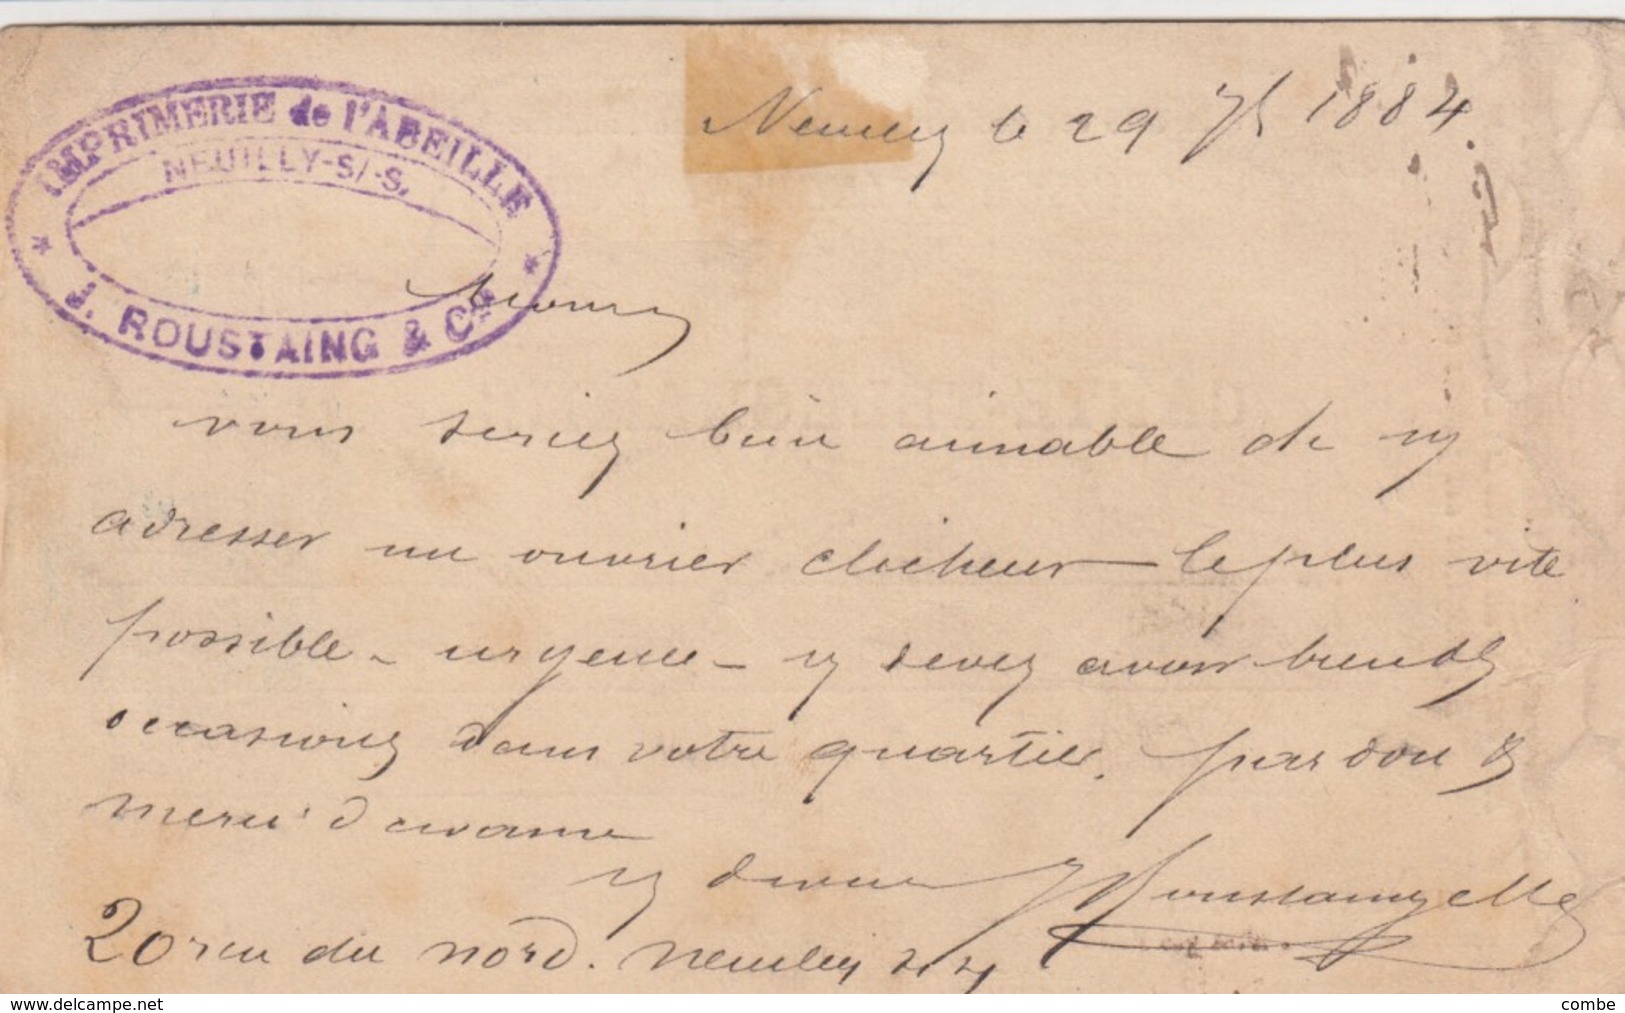 IMPRIMERIE de l'ABEILLE
NEUILLY-S/-S.
J. ROUSTAING & Cie
Neuilly le 29 1884
vous seriez bien aimable de m'y
adresser un ouvrier clicheur le plus vite
possible - urgence - y devez avoir
occasions dans votre quartier. pardon &
merci d'avance
J Roustaing
20 rue du nord. Neuilly s/s
combe
www.delcampe.net